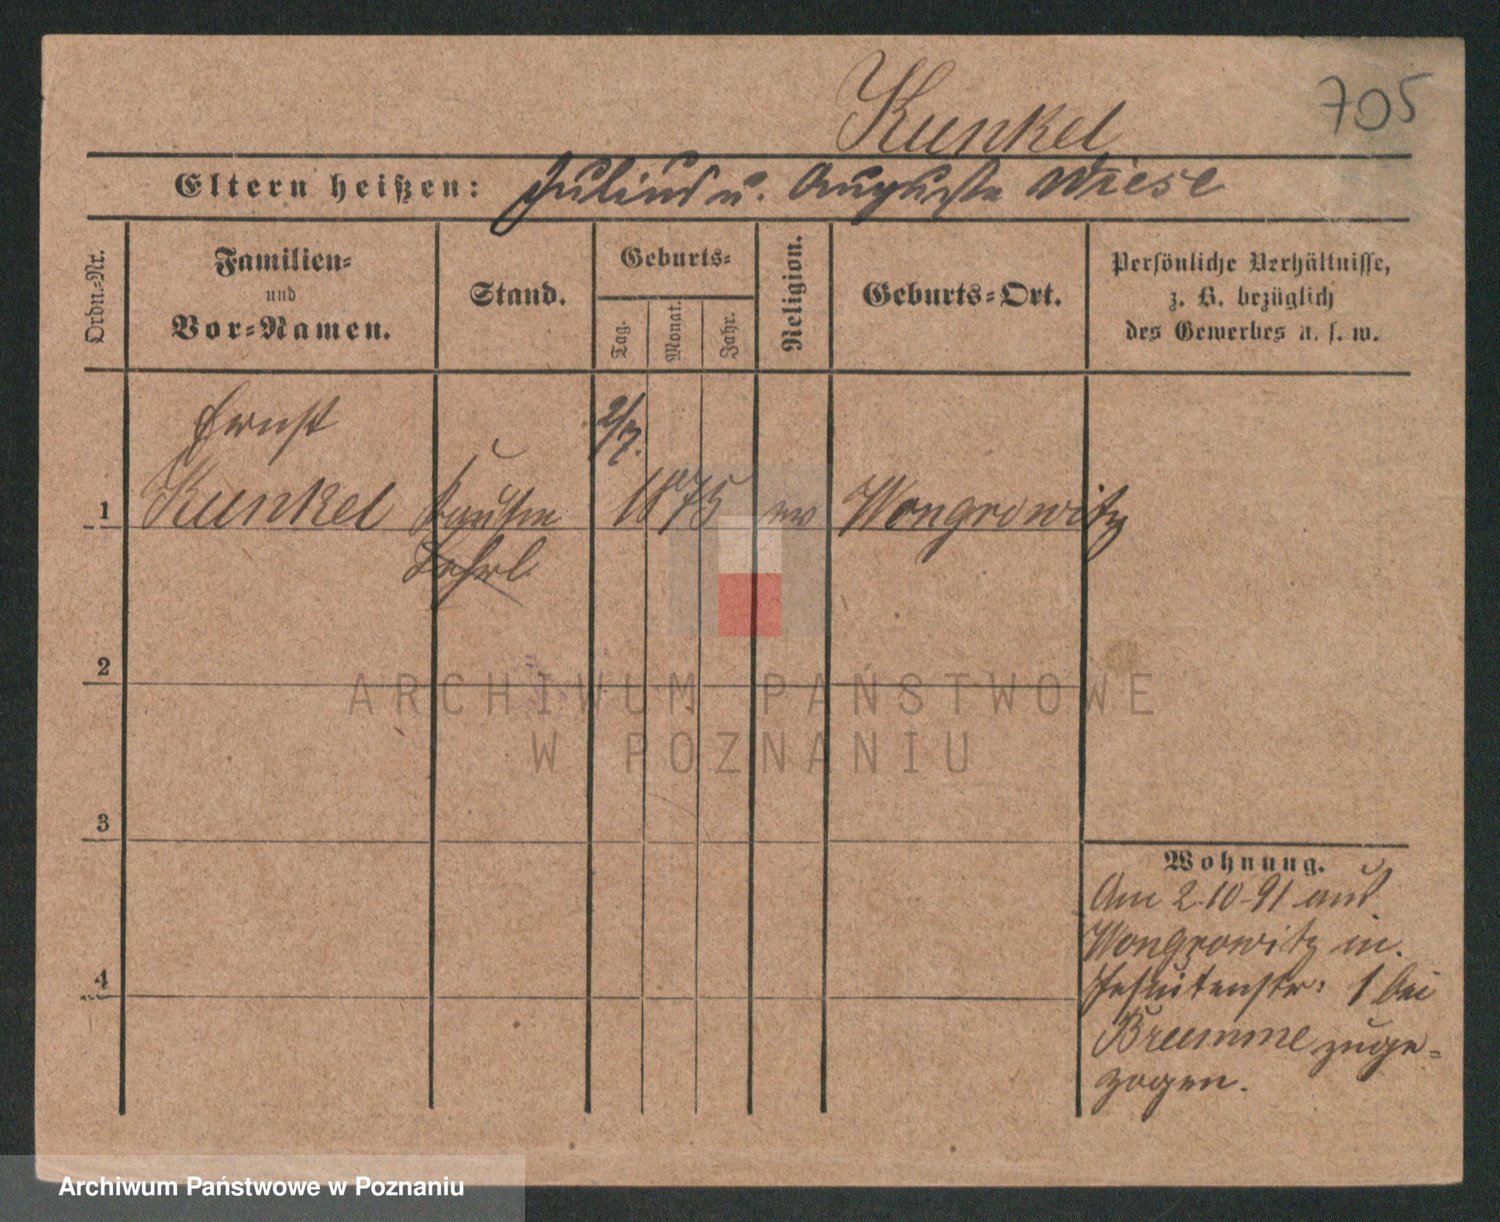 705
Kunkel
Eltern heißen: Julius u. Auguste Wiese
Ordn.-Nr.
Familien-
und
Vor-Namen.
Stand.
Geburts-
Tag.
Monat.
Jahr.
Religion.
Geburts-Ort.
Persönliche Verhältnisse,
z. B. bezüglich
des Gewerbes u. s. w.
Ernst
2/7.
1 Kunkel Kaufm 1875 ev Wongrowitz
Lehrl.
2
3
4
Wohnung.
Am 2-10-91 aus
Wongrowitz in.
Jesuitenstr: 1 bei
Brumme zuge-
zogen.
ARCHIWUM PAŃSTWOWE
W POZNANIU
Archiwum Państwowe w Poznaniu